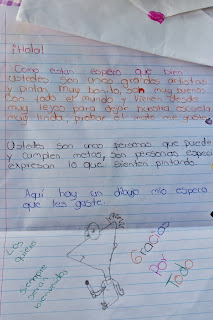 ¡Hola!
Como estan espero que bien
Ustedes son unos grandes artistas
y pintan muy bonito, son muy buenos
son todo el mundo y vienen desde
muy lejos para dejar nuestra escuela
muy linda, probar el mate me gusto
Ustedes son unas personas que puede
y cumplen metas, son personas especi
expresan lo que sienten pintando.
Aqui hay un dibujo mio espero
que les guste.
Los quiero
siempre
seran
bienvenidos
Gracias
Por
Todo